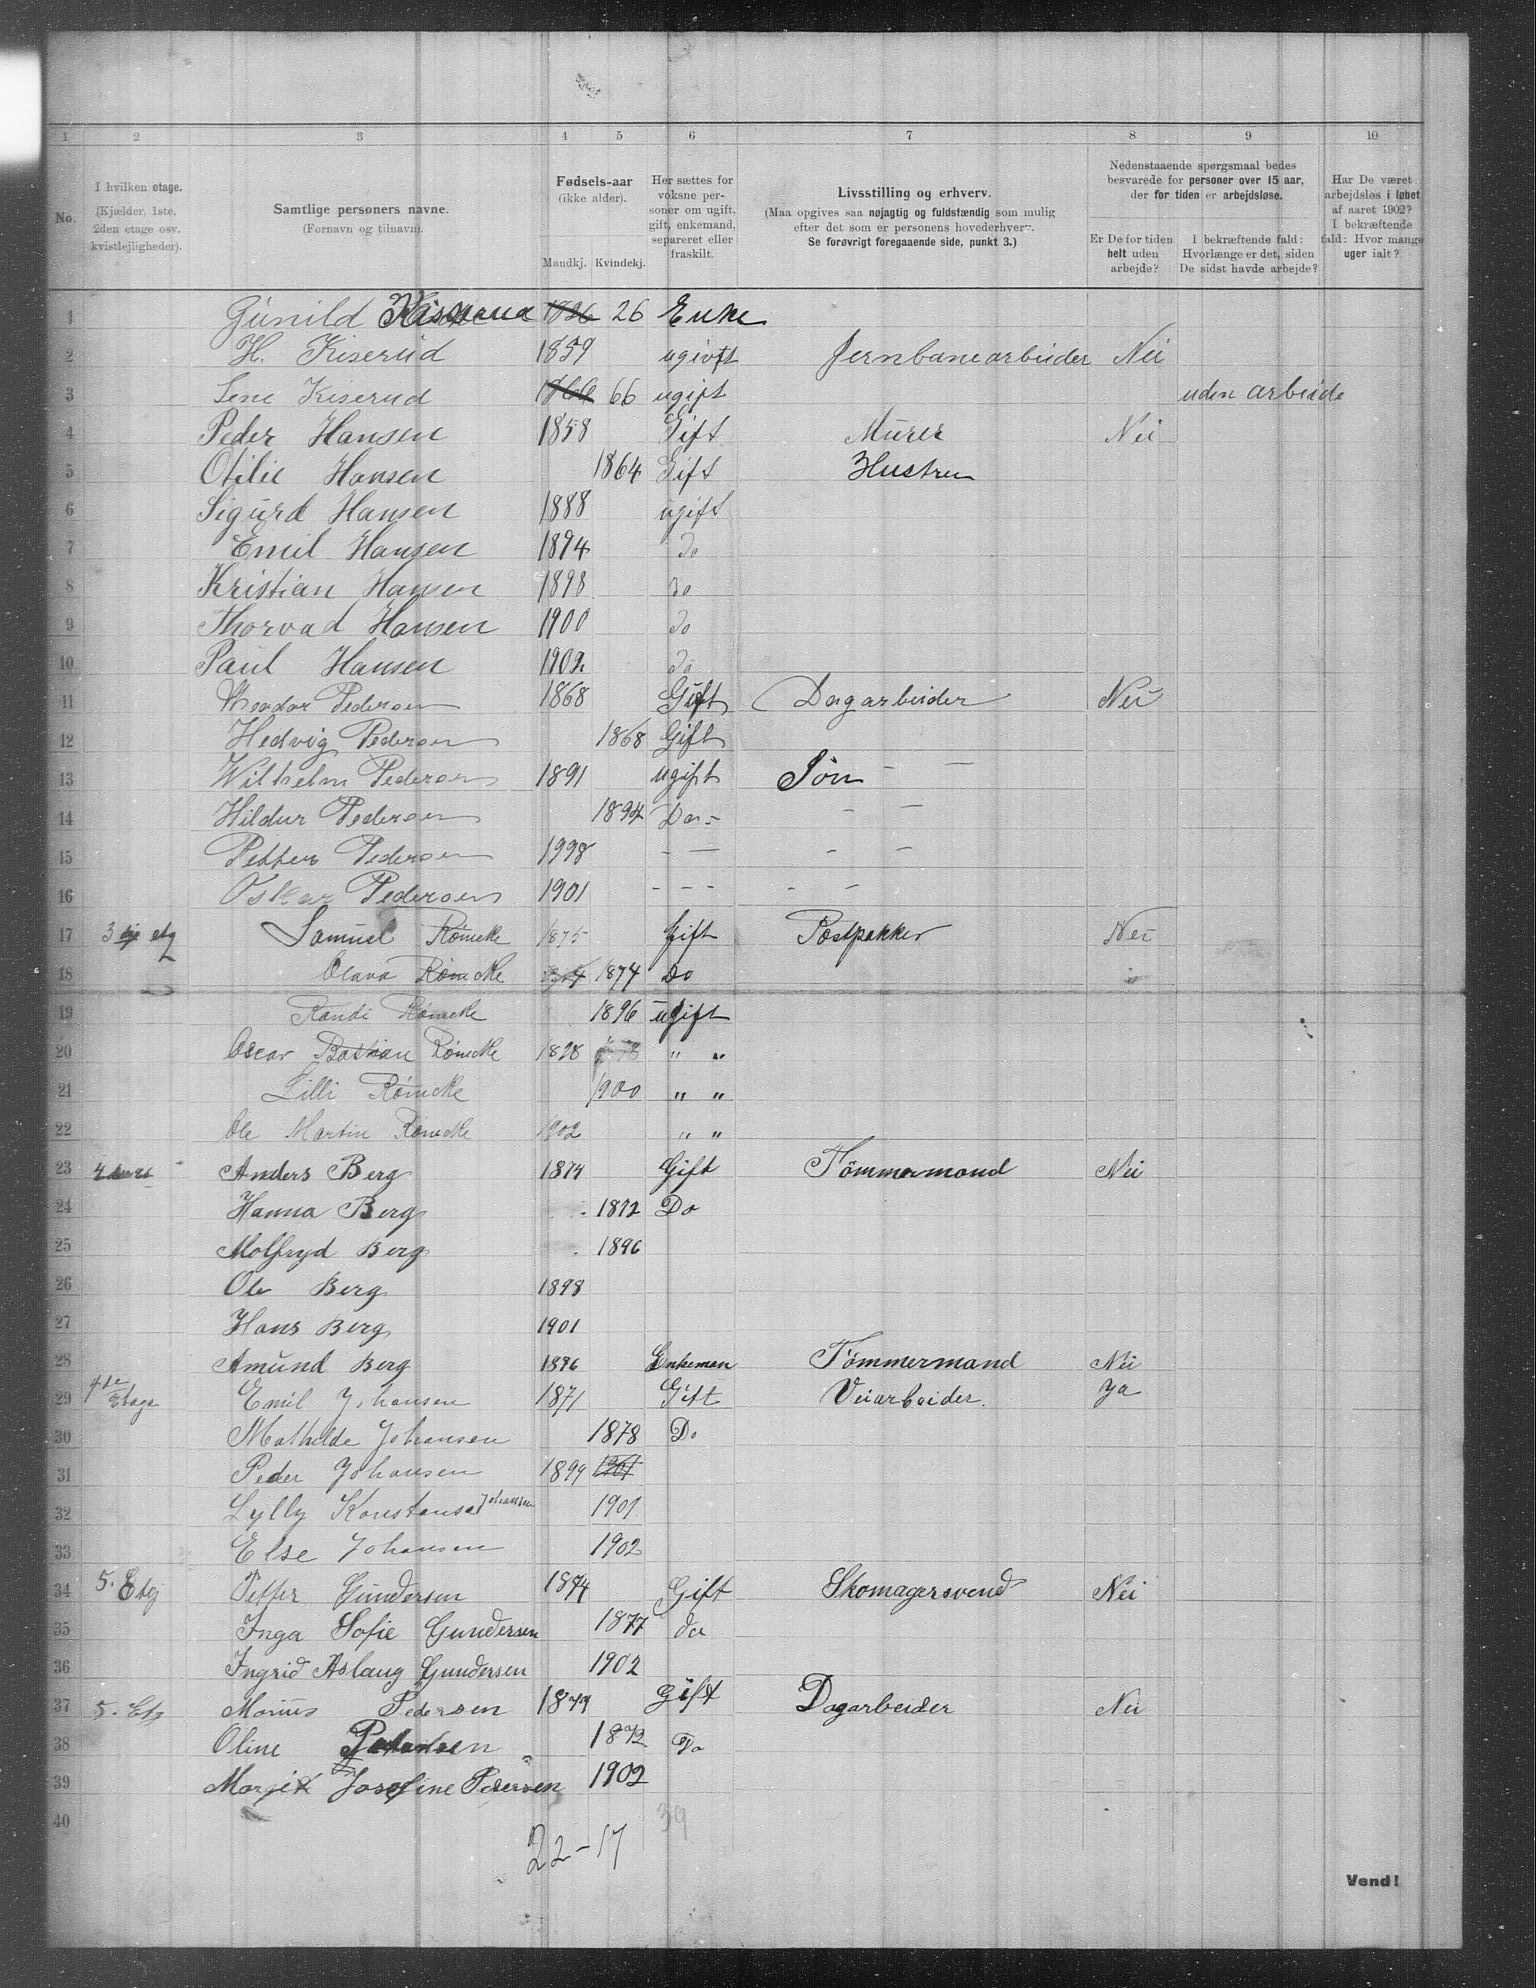 1 2 3 4 5 6 7 8 9 10
No.
I hvilken etage.
(Kjælder, 1ste, 2den etage osv. kvistlejligheder).
Samtlige personers navne.
(Fornavn og tilnavn).
Fødsels-aar
(ikke alder).
Mandkj. Kvindekj.
Her sættes for voksne personer om ugift, gift, enkemand, separeret eller fraskilt.
Livsstilling og erhverv.
(Maa opgives saa nøjagtig og fuldstændig som mulig
efter det som er personens hovederhverv.
Se forøvrigt foregaaende side, punkt 3.)
Nedenstaaende spørgsmaal bedes besvarede for personer over 15 aar, der for tiden er arbejdsløse.
Er De for tiden helt uden arbejde?
I bekræftende fald: Hvorlænge er det, siden De sidst havde arbejde?
Har De været arbejdsløs i løbet af aaret 1902? I bekræftende fald: Hvor mange uger ialt?
1 Günild 1826 26 Enke
2 H. Kiserud 1859 ugivft Jernbanearbeider Nei
3 Lene Kiserud 1866 66 ugift uden arbeide
4 Peder Hansen 1858 Gift Murer Nei
5 Otilie Hansen 1864 Gift Hustru
6 Sigurd Hansen 1888 ugift
7 Emil Hansen 1894 do
8 Kristian Hansen 1898 do
9 Thorvad Hansen 1900 do
10 Paul Hansen 1902 do
11 Theodor Pedersen 1868 Gift Dagarbeider Nei
12 Hedvig Pedersen 1868 Gift
13 Wilhelm Pedersen 1891 ugift Søn - —
14 Hildur Pedersen 1894 Do - - —
15 Petter Pedersen 1998 - — - -
16 Oskar Pedersen 1901 - - - - -
17 3die etg Samuel Rømcke 1875 Gift Postpakker Nei
18 Olava Rømcke 1874 1874 Do
19 Randi Rømcke 1896 ugift
20 Oscar Bastian Rømcke 1898 " "
21 Lilli Rømcke 1900 " "
22 Ole Martin Rømcke 1902 " "
23 Anders Berg 1874 Gift Tømmermand Nei
24 Hanna Berg 1872 Do
25 Molfryd Berg 1896
26 Ole Berg 1898
27 Hans Berg 1901
28 Amund Berg 1826 Enkeman Tømmermand Nei
29 4de Etage Emil Johansen 1871 Gift Veiarbeider. Ja
30 Mathilde Johansen 1878 Do
31 Peder Johansen 1899 1901
32 Lylly Konstanse Johansen 1901
33 Else Johansen 1902
34 5. Etg Petter Gundersen 1874 Gift Skomagersvend Nei
35 Inga Sofie Gundersen 1877 do
36 Ingrid Aslaug Gundersen 1902
37 5. Etg Marius Pedersen 1879 Gift Dagarbeider Nei
38 Oline Pedersen 1872 Do
39 Margit Josefine Pedersen 1902
40
22-17 39
Vend!